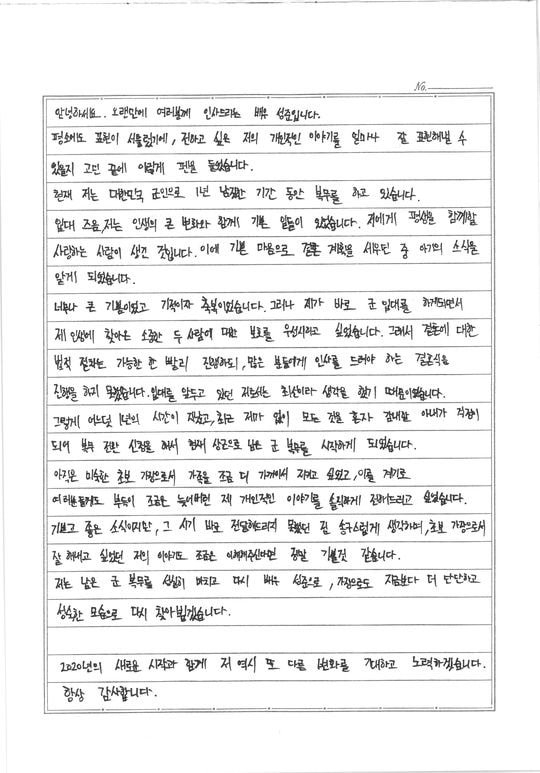 No.
안녕하세요. 오랜만에 여러분께 인사드리는 배우 성준입니다.
평소에도 표현이 서툴렀기에, 전하고 싶은 저의 개인적인 이야기를 얼마나 잘 표현해낼 수
있을지 고민 끝에 이렇게 펜을 들었습니다.
현재 저는 대한민국 군인으로 1년 남짓한 기간 동안 복무를 하고 있습니다.
입대 즈음, 저는 인생의 큰 변화와 함께 기쁜 일들이 있었습니다. 저에게 평생을 함께할
사랑하는 사람이 생긴 것입니다. 이에 기쁜 마음으로 결혼 계획을 세우던 중 아기의 소식을
알게 되었습니다.
너무나 큰 기쁨이었고 기적이자 축복이었습니다. 그러나 제가 바로 군 입대를 하게되면서
제 인생에 찾아온 소중한 두 사람에 대한 보호를 우선시하고 싶었습니다. 그래서 결혼에 대한
법적 절차는 가능한 한 빨리 진행하되, 많은 분들에게 인사를 드려야 하는 결혼식을
진행을 하지 못했습니다. 입대를 앞두고 있던 저로서는 최선이라 생각을 했기 때문이었습니다.
그렇게 어느덧 1년의 시간이 지났고, 최근 저와 없이 모든 것을 혼자 감내할 아내가 걱정이
되어 복무 전환 신청을 해서 현재 상근으로 남은 군 복무를 시작하게 되었습니다.
아직은 미숙한 초보 가장으로서 가정을 조금 더 가까이서 지키고 싶었고, 이를 계기로
여러분들께도 부득이 조금은 늦어버린 제 개인적인 이야기를 솔직하게 전해드리고 싶었습니다.
기쁘고 좋은 소식이지만, 그 시기 바로 전달해드리지 못했던 점 송구스럽게 생각하며, 초보 가장으로서
잘 해내고 싶었던 저의 이야기도 조금은 이해해주신다면 정말 기쁠것 같습니다.
저는 남은 군 복무를 성실히 마치고 다시 배우 성준으로, 가장으로도 지금보다 더 단단하고
성숙한 모습으로 다시 찾아뵙겠습니다.
2020년의 새로운 시작과 함께 저 역시 또 다른 변화를 기대하고 노력하겠습니다.
항상 감사합니다.